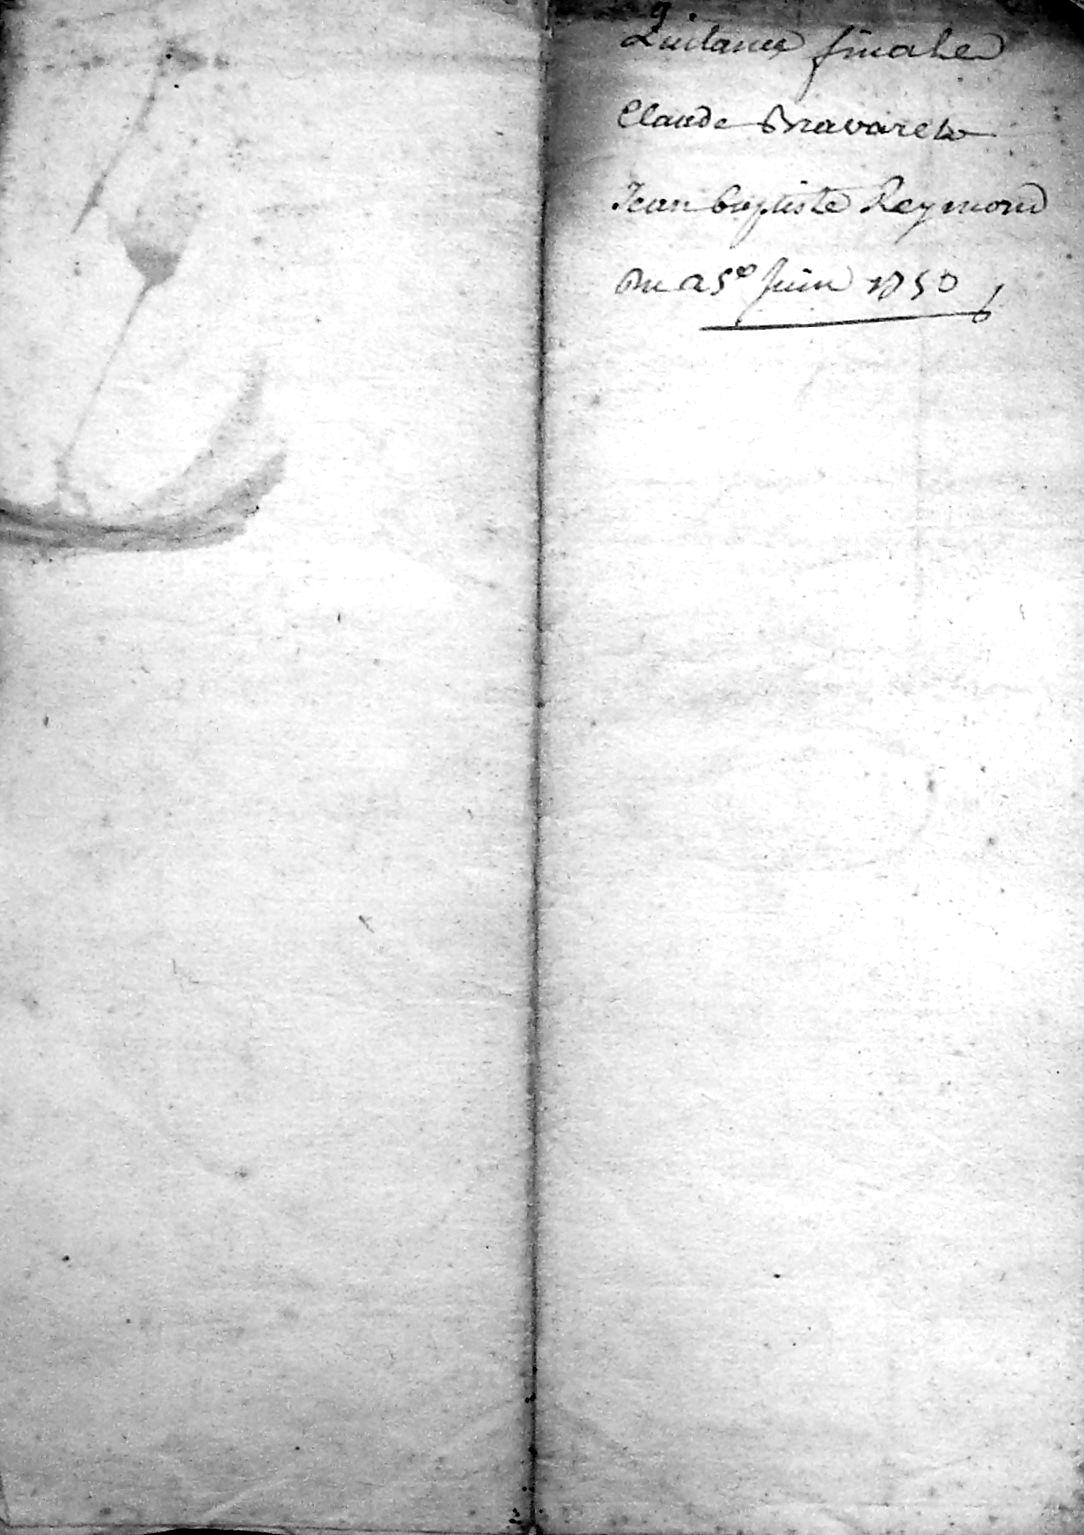 9.
Quitance finale
Claude Bravarel
Jean baptiste Reymond
Du 25e Juin 1750